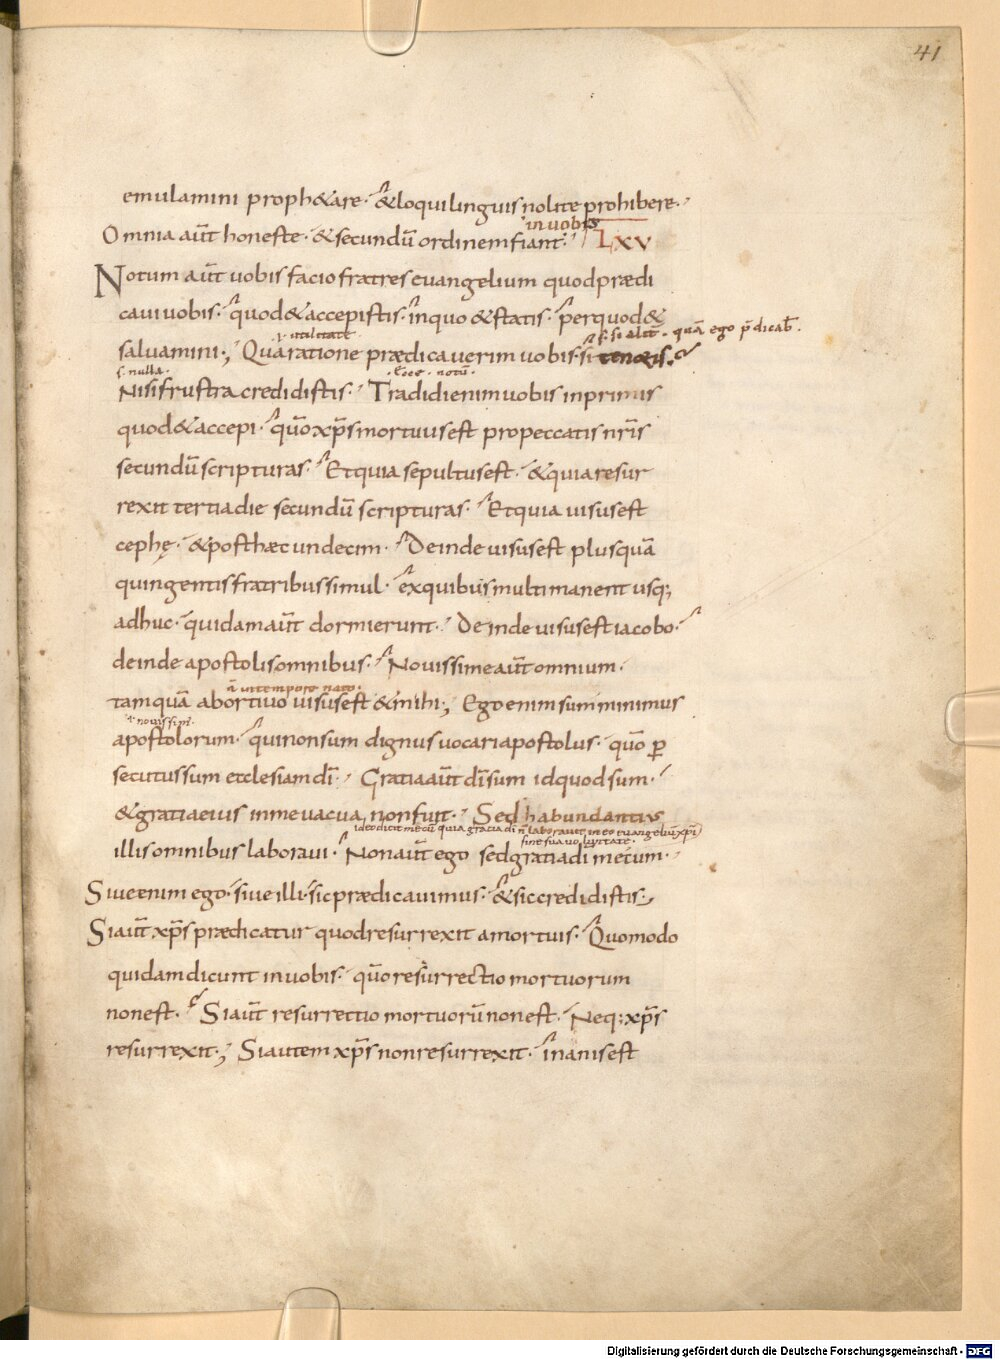 41
emulamini proph&are · & loqui linguis nolite prohibere ·
in uobis
Omnia aut̄ honeste · & secundū ordinem fiant · LXV
Notum aut̄ uobis facio fratres euangelium quod prædi
caui uobis · quod & accepistis · in quo & statis · per quod &
quā ego p̄dicab̄ ·
saluamini ·, Qua ratione prædicauerim uobis · si ten&is ·
s· nulla ·
Nisi frustra credidistis · Tradidi enim uobis inprimis
quod & accepi · qūo xp̄s mortuus est pro peccatis nr̄is
secundū scripturas · Et quia sepultus est · & quia resur
rexit tertia die secundū scripturas · Et quia uisus est
cephę · & post hæc undecim · Deinde uisus est plus quā
quingentis fratribus simul · ex quibus multi manent usq;
adhuc · quidam aut̄ dormierunt · Deinde uisus est iacobo ·
deinde apostolis omnibus · Nouissime aut̄ omnium ·
tempore nato ·
tamquā abortiuo uisus est & mihi ·, Ego enim sum minimus
apostolorum · qui non sum dignus uocari apostolus · qūo p̱
secutus sum ecclesiam dī · Gratia aut̄ dī sum id quod sum ·
& gratia eius in me uacua non fuit · Sed habundantius
ideo dicit mecū quia gratia dī n̄ laborauit in eo euangeliū xp̄i
sine sua uoluntate ·
illis omnibus laboraui · Non aut̄ ego sed gratia dī mecum ·
Siue enim ego · siue illi · sic prædicauimus · & sic credidistis ·,
Si aut̄ xp̄s prædicatur quod resurrexit a mortuis · Quomodo
quidam dicunt in uobis · qūo resurrectio mortuorum
non est · Si aut̄ resurrectio mortuorū non est · Neq; xp̄s
resurrexit ·, Si autem xp̄s non resurrexit · inanis est
Digitalisierung gefördert durch die Deutsche Forschungsgemeinschaft - DFG